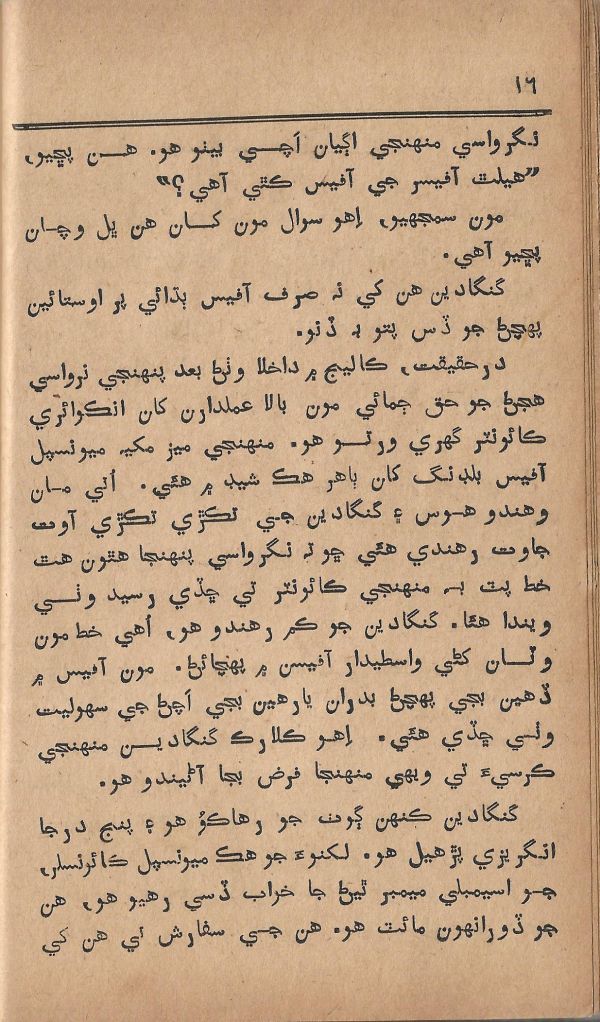 ١٦
نگرواسي منهنجي اڳيان اَچي بيٺو هو. هن پڇيو،
”هيلٿ آفيسر جي آفيس ڪٿي آهي؟“
مون سمجهيو، اِهو سوال مون کان هن ڀل وچان
پڇيو آهي.
گنگادين هن کي نہ صرف آفيس ٻڌائي پر اوستائين
پهچڻ جو ڏس پتو بہ ڏنو.
درحقيقت، ڪاليج ۾ داخلا وٺڻ بعد پنهنجي نرواسي
هجڻ جو حق ڄمائي مون بالا عملدارن کان انڪوائري
ڪائونٽر گهري ورتو هو. منهنجي ميز مکيہ ميونسپل
آفيس بلڊنگ کان ٻاهر هڪ شيڊ ۾ هئي. اُتي مان
وهندو هوس ۽ گنگادين جي تڪڙي تڪڙي آوت
جاوت رهندي هئي ڇو تہ نگرواسي پنهنجا هٿون هٿ
خط پٽ بہ منهنجي ڪائونٽر تي ڇڏي رسيد وٺي
ويندا هئا. گنگادين جو ڪم رهندو هو، اُهي خط مون
وٽان کڻي واسطيدار آفيسن ۾ پهچائڻ. مون آفيس ۾
ڏهين بجي پهچڻ بدران يارهين بجي اَچڻ جي سهوليت
وٺي ڇڏي هئي. اِهو ڪلارڪ گنگادين منهنجي
ڪرسيءَ تي ويهي منهنجا فرض بجا آڻيندو هو.
گنگادين ڪنهن ڳوٺ جو رهاڪوُ هو ۽ پنج درجا
انگريزي پڙهيل هو. لکنوءَ جو هڪ ميونسپل ڪائونسلر،
جو اسيمبلي ميمبر ٿيڻ جا خراب ڏسي رهيو هو، هن
جو ڏورانهون مائٽ هو. هن جي سفارش تي هن کي